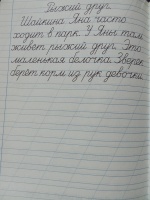 Рыжий друг.
Шайкина Яна часто
ходит в парк. У Яны там
живёт рыжий друг. Это
маленькая белочка. Зверёк
берёт корм из рук девочки.